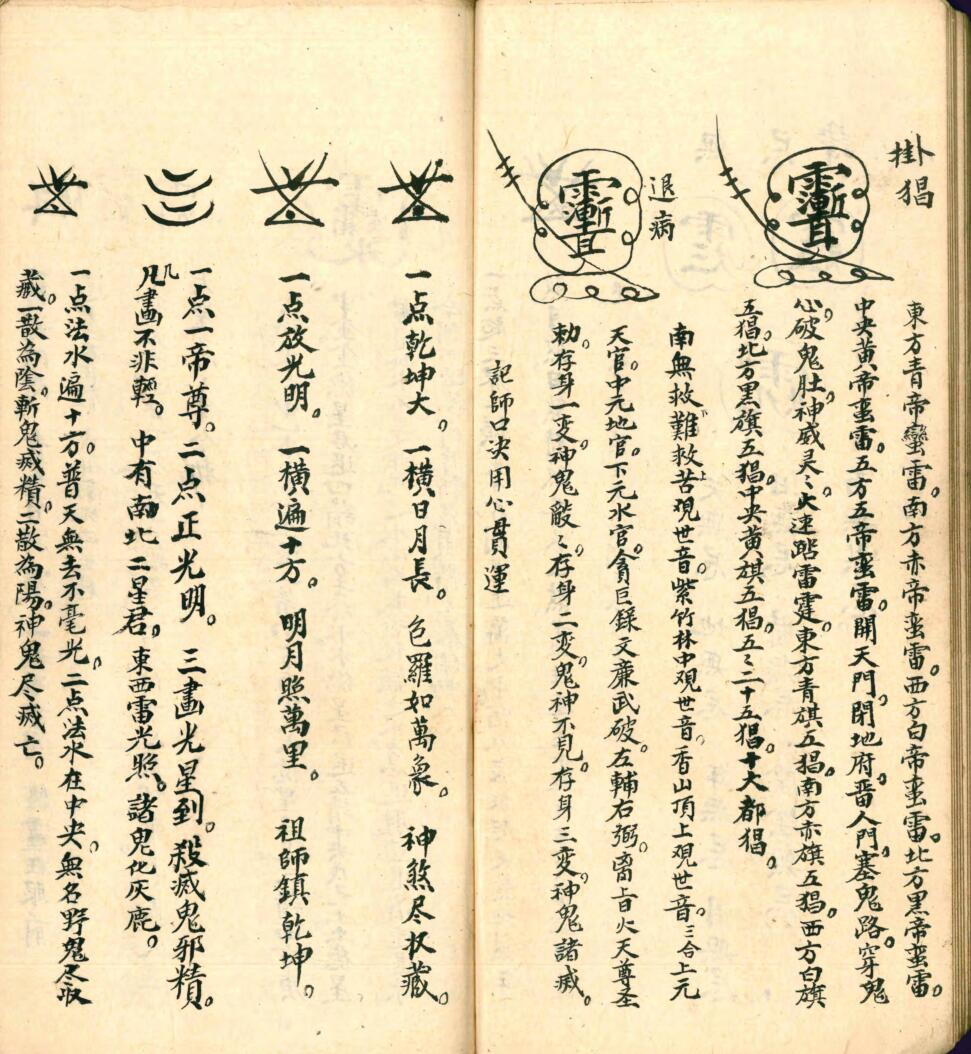 掛猖
東方青帝蠻雷。南方赤帝蛮雷。西方白帝蛮雷。北方黒帝蛮雷。
中央黄帝蛮雷。五方五帝蛮雷。開天門。閉地府。畨人門。塞鬼路。穿鬼
心。破鬼肚。神威灵〻火速踏雷霆。東方青旗五猖。南方赤旗五猖。西方白旗
五猖。北方黑旗五猖。中央黃旗五猖。五〻二十五猖。十大都猖。
退病
南無救難救苦观世音。紫竹林中观世音。香山頂上观世音。三合上元
天官。中元地官。下元水官。貪巨録文廉武破。左輔右弼。离宫火天尊圣
勅。存身一变。神鬼毄〻。存身二变。鬼神不見。存身三变。神鬼諸滅。
記師口决用心貫運
一点乾坤大。一横日月長。包羅如萬象。神煞尽扒藏。
一点放光明。一横遍十方。明月照萬里。祖師鎮乾坤。
一点一帝尊。二点正光明。三畫光星到。殺滅鬼邪精。
凡畫不非輕。中有南北二星君。東西雷光照。諸鬼化灰鹿。
一点法水遍十方。普天無去不毫光。二点法水在中央。無名野鬼尽收
藏。一散為陰。斬鬼滅精。二散為陽。神鬼尽滅亡。